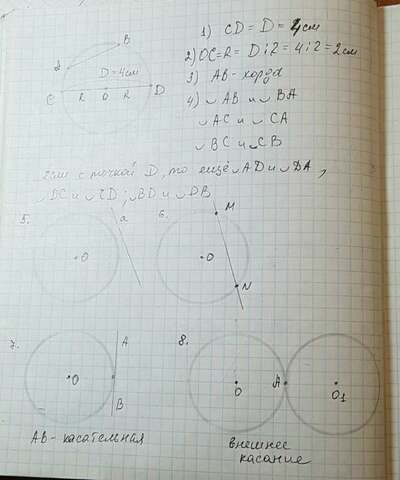 1) CD = D = 4см
2) OC = R = D : 2 = 4 : 2 = 2см
3) AB - хорда
4) ◡ AB и ◡ BA
◡ AC и ◡ CA
◡ BC и ◡ CB
B
A
D = 4см
C R O R D
если с точкой D, то ещё ◡ AD и ◡ DA,
◡ DC и ◡ CD; ◡ BD и ◡ DB
5. a
O
6. M
O
N
7. A
O
B
AB - касательная
8.
O A O1
внешнее
касание